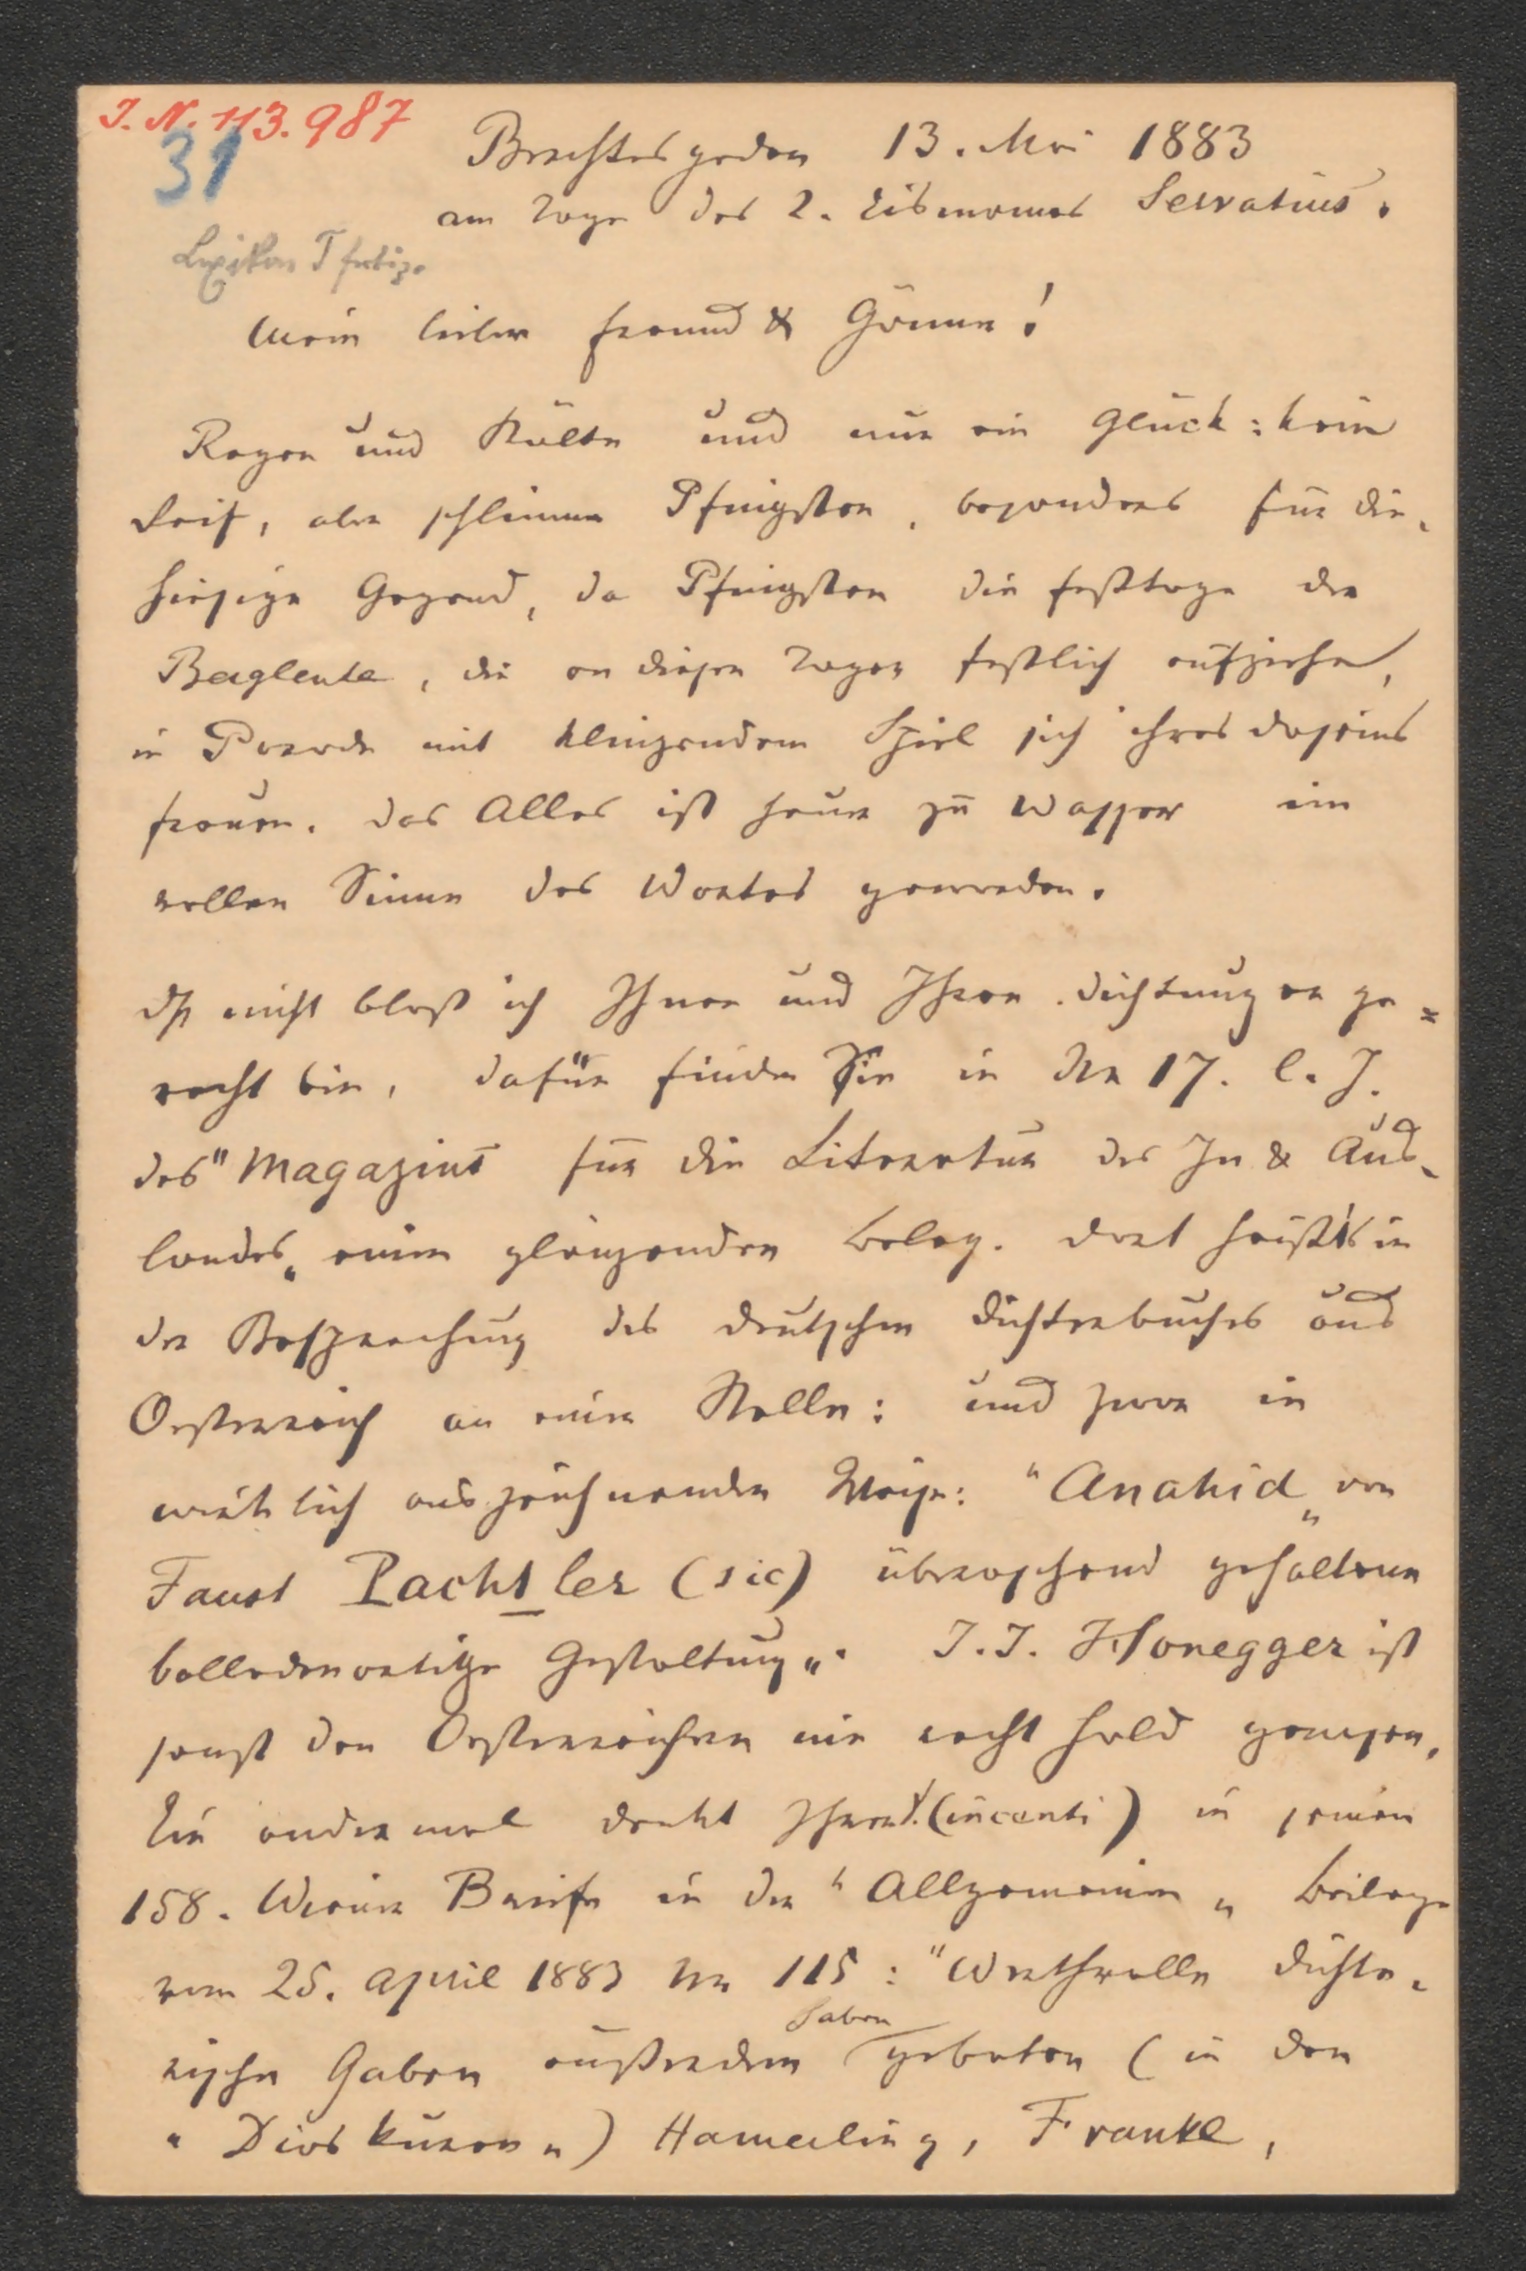 I. N. 113.987
31
Berchtesgaden 13. Mai 1883
am Tage des 2. Eismannes Servatius.
Lexikon
Mein lieber Freund & Gönner!
Regen und Kälte und nur ein Glück: kein
Reif, aber schlimme Pfingsten, besonders für die
hiesige Gegend, da Pfingsten die Festtage der
Bergleute, die an diesen Tagen festlich aufziehen,
in Parade mit klingendem Spiel sich ihres Daseins
freuen. Das Alles ist heuer zu Wasser im
vollen Sinne des Wortes geworden.
Dß nicht bloß ich Ihnen und Ihren Dichtungen ge=
recht bin, dafür finden Sie in Nr 17. l. J.
des "Magazins für die Literatur des In & Aus-
landes" einen glänzenden Beleg. Dort heißt's in
der Besprechung des deutschen Dichterbuches aus
Oesterreich an einer Stelle: und zwar in
wirklich auszeichnender Weise: "Anahid" von
Faust Pachtler (sic) überraschend gehaltene
balladenartige Gestaltung". J. J. Honegger ist
sonst den Oesterreichern nie recht hold gewesen.
Ein andermal denkt Ihrer V. (incenti) in seinen
158. Wiener Briefe in der "Allgemeinen" Beilage
vom 25. April 1883 Nr 115: "Werthvolle dichte-
rische Gaben außerdem haben geboten (in den
"Dioskuren") Hamerling, Frankl,